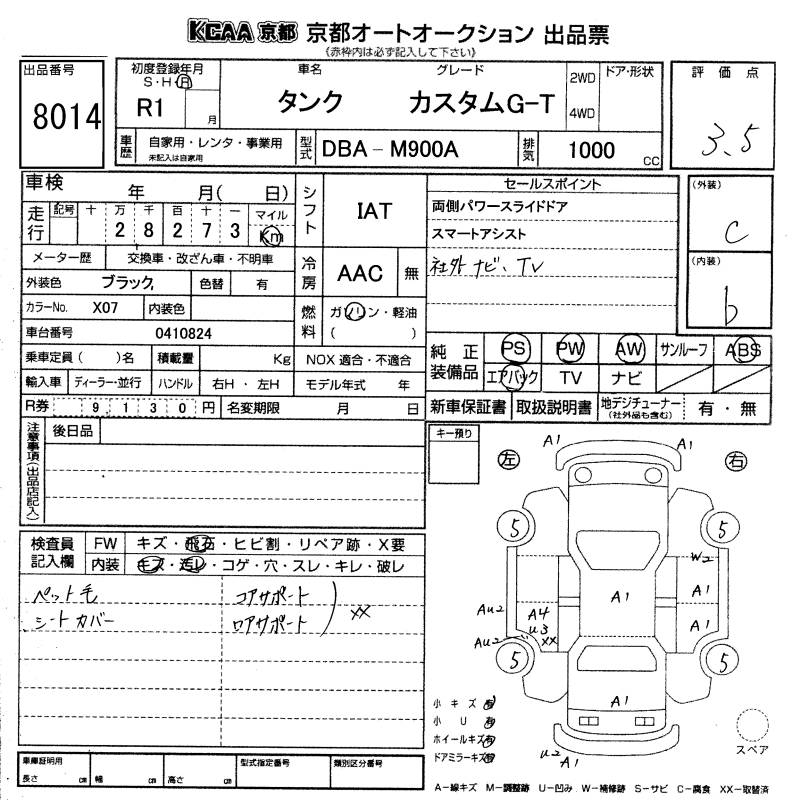 KCAA 京都 京都オートオークション 出品票
(赤枠内は必ず記入して下さい)
出品番号
8014
初度登録年月
S・H・R
R1 月
車名
タンク
グレード
カスタムG-T
2WD
4WD
ドア・形状
評価点
3.5
車歴
自家用・レンタ・事業用
未記入は自家用
型式
DBA－M900A
排気
1000 CC
車検
年 月( 日)
走行
記号 十 万 千 百 十 一 マイル
2 8 2 7 3 Km
メーター歴 交換車・改ざん車・不明車
外装色 ブラック 色替 有
カラーNo. X07 内装色
車台番号 0410824
乗車定員( )名 積載量 Kg
輸入車 ディーラー・並行 ハンドル 右H・左H
R券 9,130円 名変期限 月 日
シフト
IAT
冷房
AAC 無
燃料
ガソリン・軽油
( )
NOX 適合・不適合
モデル年式 年
セールスポイント
両側パワースライドドア
スマートアシスト
社外ナビ、TV
(外装)
C
(内装)
b
純正装備品
PS PW AW サンルーフ ABS
エアバック TV ナビ
新車保証書 取扱説明書 地デジチューナー(社外品も含む) 有・無
注意事項(出品店記入)
後日品
キー預り
検査員記入欄
FW キズ・飛石・ヒビ割・リペア跡・X要
内装 キズ・汚レ・コゲ・穴・スレ・キレ・破レ
ペット毛
シートカバー
コアサポート
ロアサポート
XX
左
右
A1
A1
5
5
W2
A1
A1
A1
AU2
A4
U3
XX
AU2
5
5
A1
U2
A1
小キズ有
小U有
ホイールキズ有
ドアミラーキズ有
スペア
車庫証明用
長さ cm 幅 cm 高さ cm
型式指定番号
類別区分番号
A－線キズ M－調整跡 U－凹み W－補修跡 S－サビ C－腐食 XX－取替済